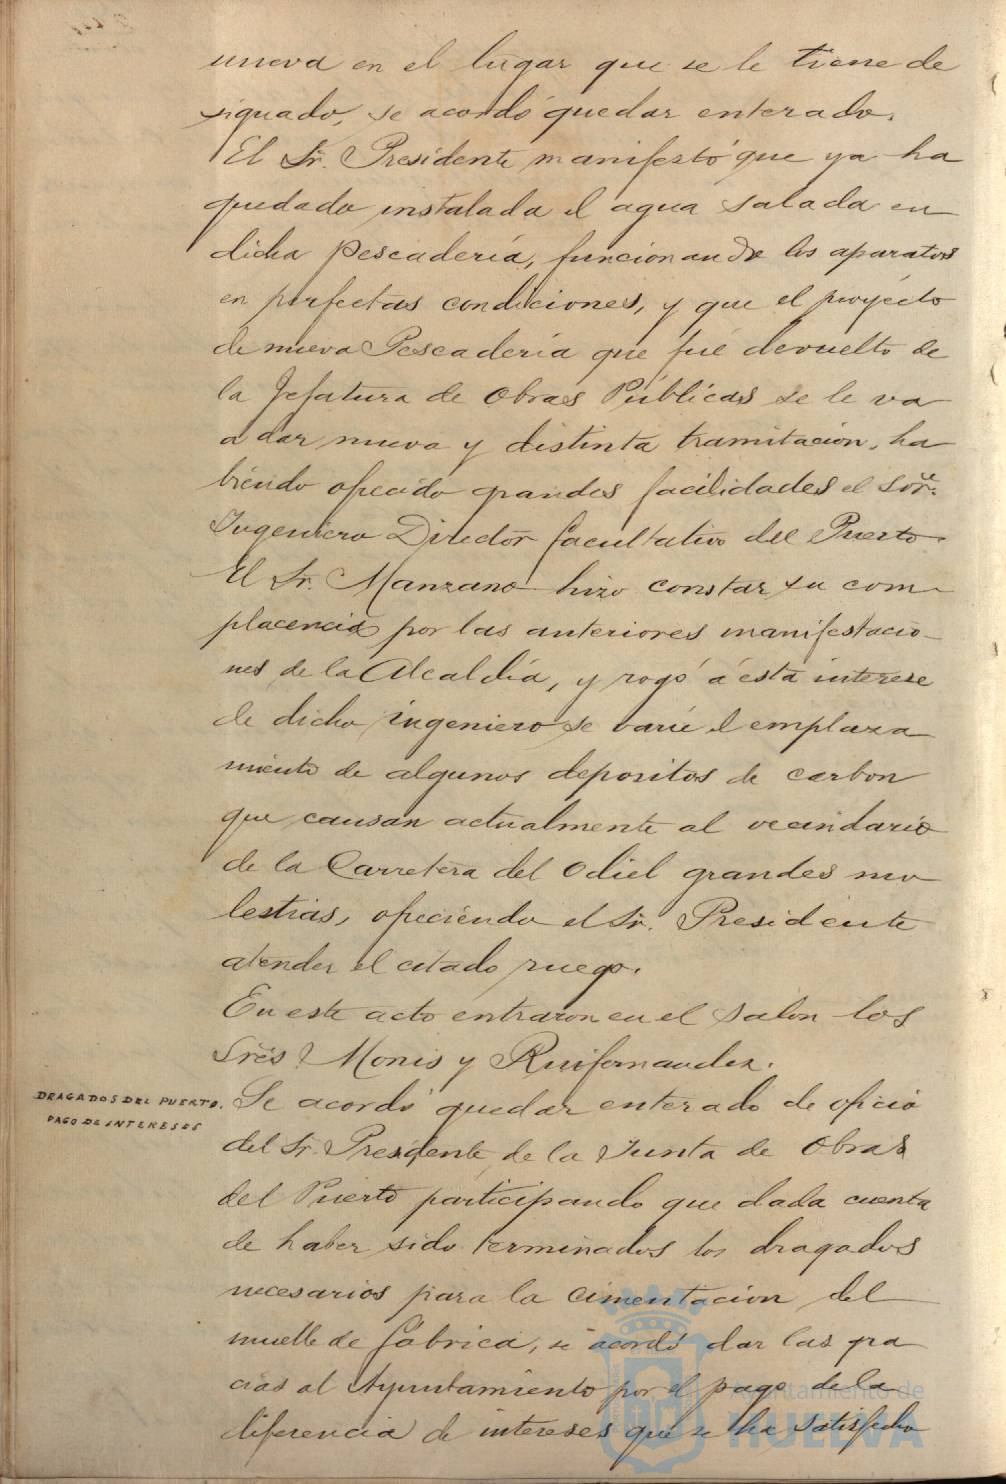 nueva en el lugar que se le tiene de
signado, se acordó quedar enterado.
El Sr. Presidente manifestó que ya ha
quedado instalada el agua salada en
dicha Pescadería, funcionando los aparatos
en perfectas condiciones, y que el proyecto
de nueva Pescadería que fué devuelto de
la Jefatura de Obras Públicas se le va
a dar nueva y distinta tramitación, ha
biendo ofrecido grandes facilidades el Sor.
Ingeniero Director facultativo del Puerto.
El Sr. Manzano hizo constar su com-
placencia por las anteriores manifestacio-
nes de la Alcaldía, y rogó á ésta interese
de dicho ingeniero se varíe el emplaza
miento de algunos depositos de carbon
que causan actualmente al vecindario
de la Carretera del Odiel grandes mo
lestias, ofreciendo el Sr. Presidente
atender el citado ruego.
En este acto entraron en el salon los
Sres Monis y Ruifernandez.
DRAGADOS DEL PUERTO.
PAGO DE INTERESES
Se acordó quedar enterado de oficio
del Sr. Presidente de la Junta de Obras
del Puerto participando que dada cuenta
de haber sido terminados los dragados
necesarios para la cimentacion del
muelle de fábrica, se acordó dar las gra
cias al Ayuntamiento por el pago de la
diferencia de intereses que se ha satisfecho
Ayuntamiento de
HUELVA